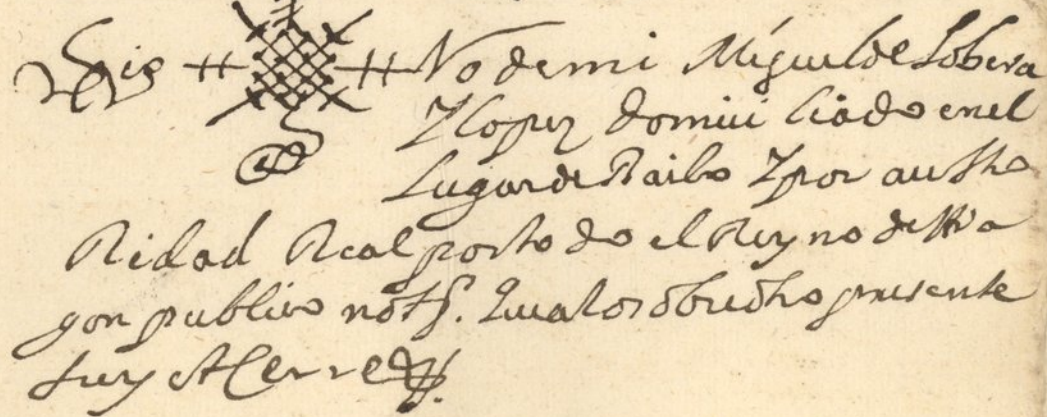 Sig no de mi Miguel de Lobera
Y Lopez domiciliado en el
Lugar de Bailo Y por autho
Ridad Real por todo el Reyno de Ara
gon publico nott. Qua lo sobredho presente
fuy et Cerre